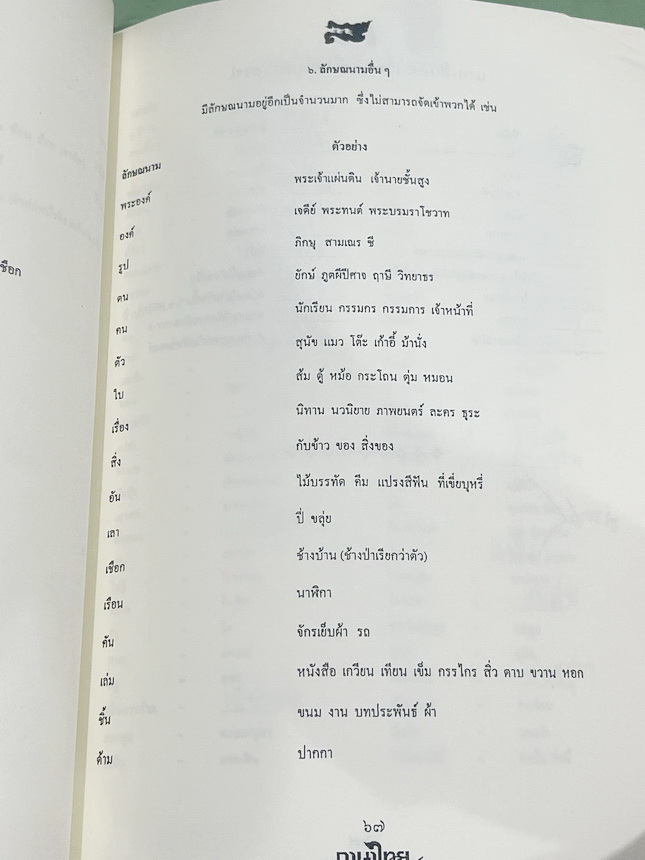 ๖. ลักษณนามอื่น ๆ
มีลักษณนามอยู่อีกเป็นจำนวนมาก ซึ่งไม่สามารถจัดเข้าพวกได้ เช่น
ลักษณนาม ตัวอย่าง
พระองค์ พระเจ้าแผ่นดิน เจ้านายชั้นสูง
องค์ เจดีย์ พระทนต์ พระบรมราโชวาท
รูป ภิกษุ สามเณร ชี
ตน ยักษ์ ภูตผีปีศาจ ฤาษี วิทยาธร
คน นักเรียน กรรมกร กรรมการ เจ้าหน้าที่
ตัว สุนัข แมว โต๊ะ เก้าอี้ ม้านั่ง
ใบ ส้ม ตู้ หม้อ กระโถน ตุ่ม หมอน
เรื่อง นิทาน นวนิยาย ภาพยนตร์ ละคร ธุระ
สิ่ง กับข้าว ของ สิ่งของ
อัน ไม้บรรทัด คีม แปรงสีฟัน ที่เขี่ยบุหรี่
เลา ปี่ ขลุ่ย
เชือก ช้างบ้าน (ช้างป่าเรียกว่าตัว)
เรือน นาฬิกา
คัน จักรเย็บผ้า รถ
เล่ม หนังสือ เกวียน เทียน เข็ม กรรไกร สิ่ว ดาบ ขวาน หอก
ชิ้น ขนม งาน บทประพันธ์ ผ้า
ด้าม ปากกา
๖๗